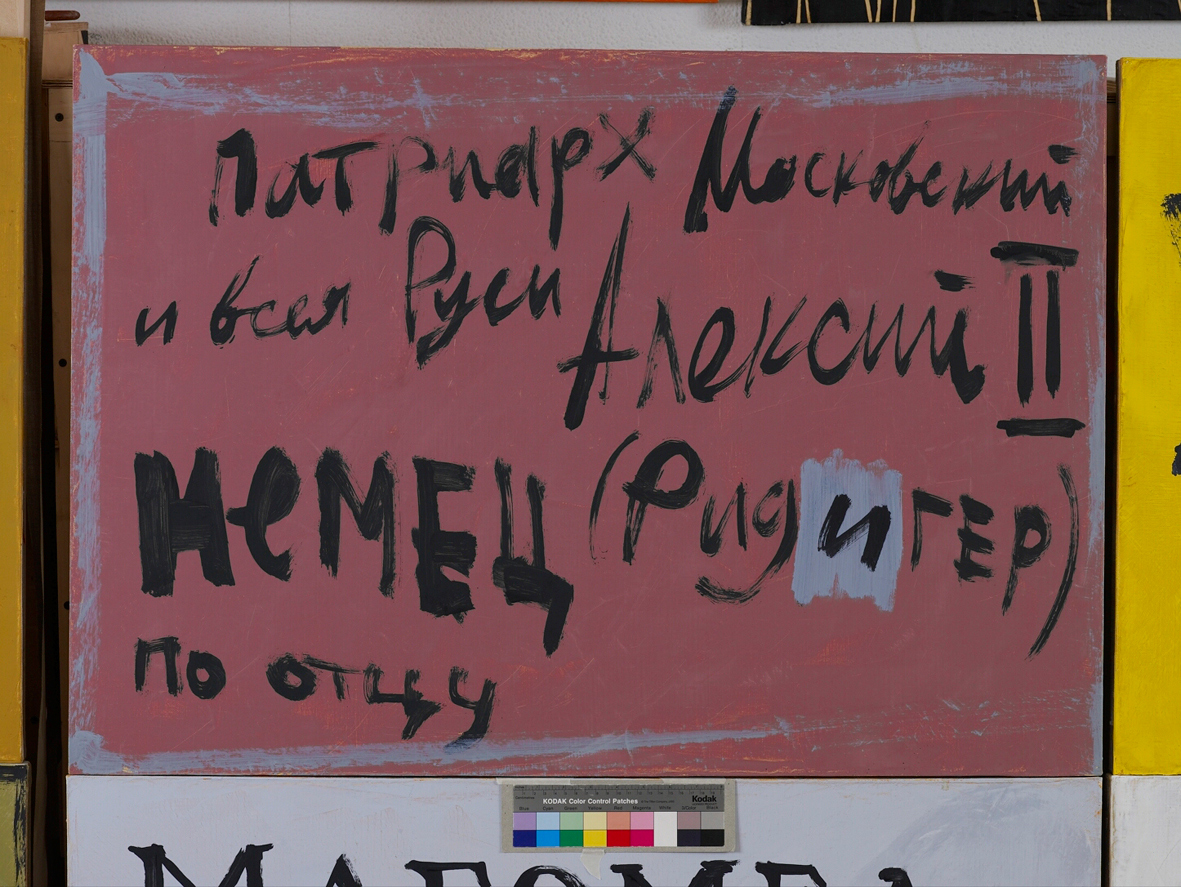 Патриарх Московский
и всея Руси Алексий II
немец (Ридигер)
по отцу
KODAK Color Control Patches Kodak
Blue Cyan Green Yellow Red Magenta White 3/Color Black